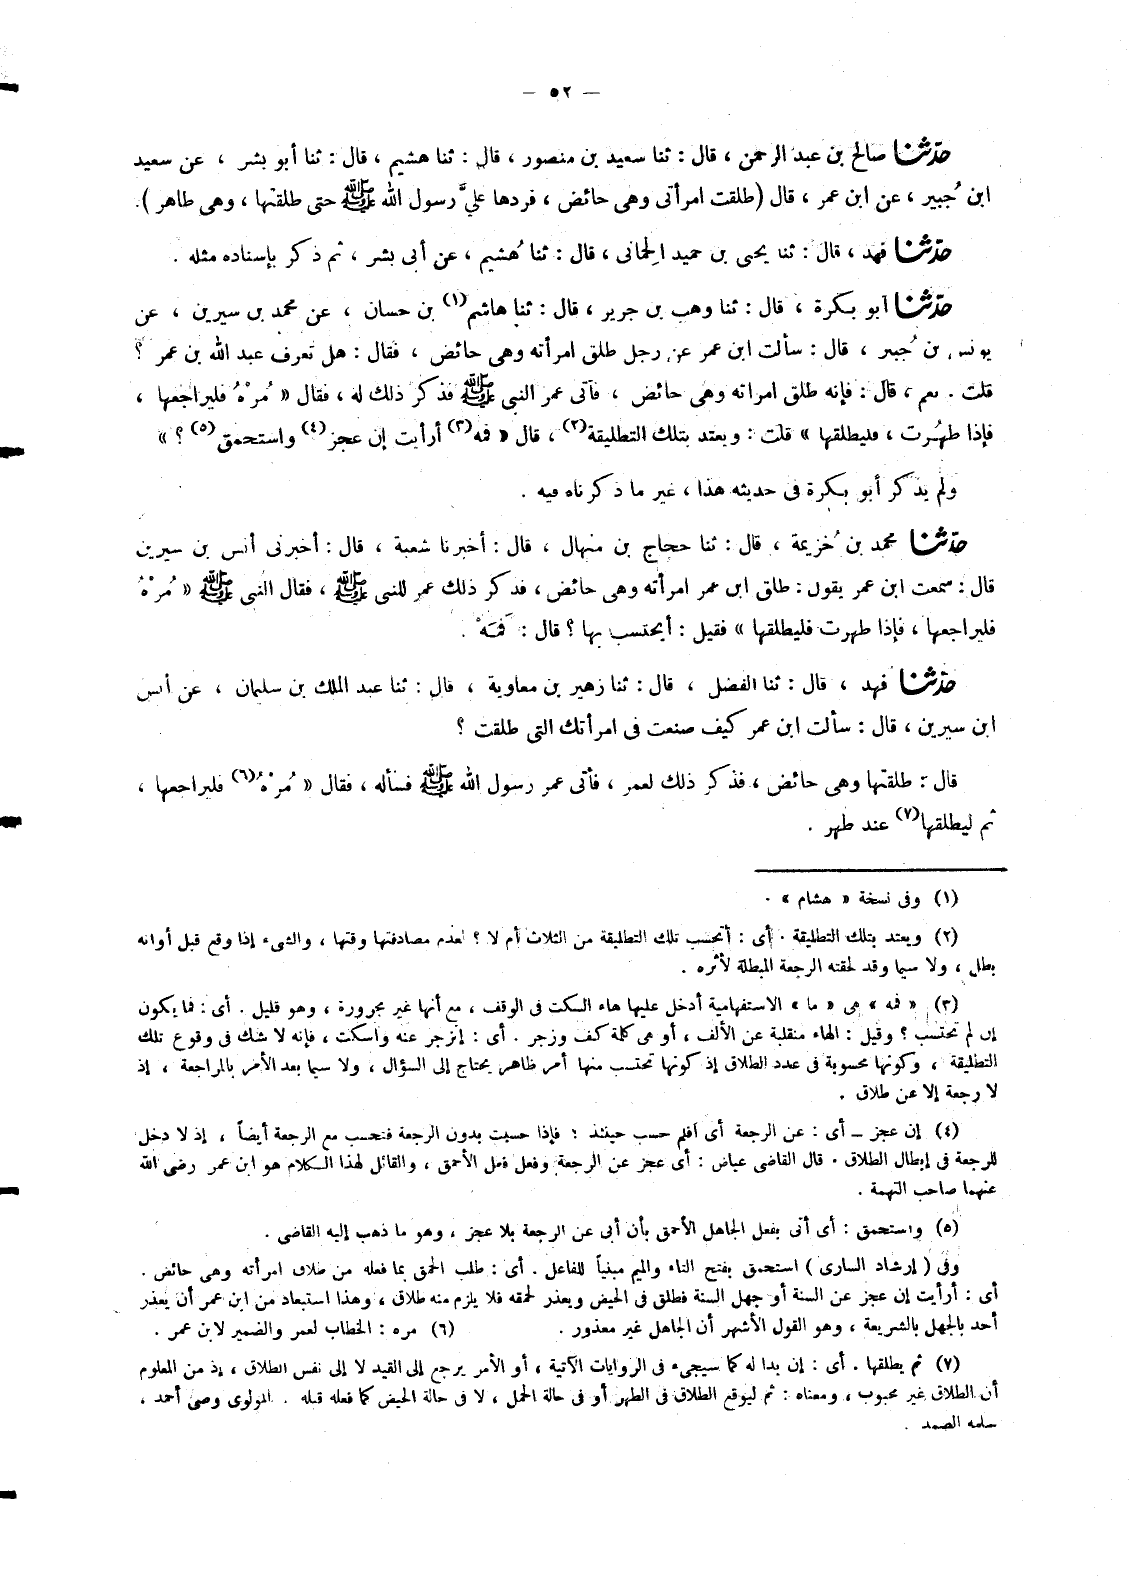 — ٥٢ —
حدّثنا صالح بن عبد الرحمن ، قال : ثنا سعيد بن منصور ، قال : ثنا هشيم ، قال : ثنا أبو بشر ، عن سعيد
ابن جُبير ، عن ابن عمر ، قال (طلقت امرأتى وهى حائض ، فردها علىَّ رسول الله ﷺ حتى طلقتها ، وهى طاهر ).
حدّثنا فهد ، قال : ثنا يحيى بن حميد الحِمانى ، قال : ثنا هُشيم ، عن أبى بشر ، ثم ذكر بإسناده مثله .
حدّثنا أبو بكرة ، قال : ثنا وهب بن جرير ، قال : ثنا هاشم(١) بن حسان ، عن محمد بن سيرين ، عن
يونس بن جُبير ، قال : سألت ابن عمر عن رجل طلق امرأته وهى حائض ، فقال : هل تعرف عبد الله بن عمر ؟
قلت . نعم ، قال : فإنه طلق امرأته وهى حائض ، فأتى عمر النبى ﷺ فذكر ذلك له ، فقال « مُرْهُ فليراجعها ،
فإذا طهُرت ، فليطلقها » قلت : ويعتد بتلك التطليقة(٢) ، قال « فمه(٣) أرأيت إن عجز(٤) واستحمق(٥) ؟ »
ولم يذكر أبو بكرة فى حديثه هذا ، غير ما ذكرناه فيه .
حدّثنا محمد بن خُزيمة ، قال : ثنا حجاج بن منهال ، قال : أخبرنا شعبة ، قال : أخبرنى أنس بن سيرين
قال : سمعت ابن عمر يقول : طلق ابن عمر امرأته وهى حائض ، فذكر ذلك عمر للنبى ﷺ ، فقال النبى ﷺ « مُرْهُ
فليراجعها ، فإذا طهرت فليطلقها » فقيل : أيحتسب بها ؟ قال : فَمَهْ .
حدّثنا فهد ، قال : ثنا الفضل ، قال : ثنا زهير بن معاوية ، قال : ثنا عبد الملك بن سليمان ، عن أنس
ابن سيرين ، قال : سألت ابن عمر كيف صنعت فى امرأتك التى طلقت ؟
قال : طلقتها وهى حائض ، فذكر ذلك لعمر ، فأتى عمر رسول الله ﷺ فسأله ، فقال « مُرْهُ(٦) فليراجعها ،
ثم ليطلقها(٧) عند طهر .
(١) وفى نسخة « هشام » .
(٢) ويعتد بتلك التطليقة . أى : أتحتسب تلك التطليقة من الثلاث أم لا ؟ لعدم مصادفتها وقتها ، والشىء إذا وقع قبل أوانه
بطل ، ولا سيما وقد لحقته الرجعة المبطلة لأثره .
(٣) « فمه » هى « ما » الاستفهامية أدخل عليها هاء السكت فى الوقف ، مع أنها غير مجرورة ، وهو قليل . أى : فما يكون
إن لم تحتسب ؟ وقيل : الهاء منقلبة عن الألف ، أو هى كلمة كف وزجر . أى : إنزجر عنه واسكت ، فإنه لا شك فى وقوع تلك
التطليقة ، وكونها محسوبة فى عدد الطلاق إذ كونها تحتسب منها أمر ظاهر يحتاج إلى السؤال ، ولا سيما بعد الأمر بالمراجعة ، إذ
لا رجعة إلا عن طلاق .
(٤) إن عجز – أى : عن الرجعة أى أفلم حسب حينئذ ؛ فإذا حسبت بدون الرجعة فتحسب مع الرجعة أيضاً ، إذ لا دخل
للرجعة فى إبطال الطلاق . قال القاضى عياض : أى عجز عن الرجعة وفعل فعل الأحمق ، والقائل لهذا الكلام هو ابن عمر رضى الله
عنهما صاحب التهمة .
(٥) واستحمق : أى أتى بفعل الجاهل الأحمق بأن أبى عن الرجعة بلا عجز ، وهو ما ذهب إليه القاضى .
وفى ( إرشاد السارى ) استحمق بفتح التاء والميم مبنياً للفاعل . أى : طلب الحمق بما فعله من طلاق امرأته وهى حائض .
أى : أرأيت إن عجز عن السنة أو جهل السنة فطلق فى الحيض ويعذر لحمقه فلا يلزم منه طلاق ، وهذا استبعاد من ابن عمر أن يعذر
أحد بالجهل بالشريعة ، وهو القول الأشهر أن الجاهل غير معذور . (٦) مره : الخطاب لعمر والضمير لابن عمر .
(٧) ثم يطلقها . أى : إن بدا له كما سيجىء فى الروايات الآتية ، أو الأمر يرجع إلى القيد لا إلى نفس الطلاق ، إذ من المعلوم
أن الطلاق غير محبوب ، ومعناه : ثم ليوقع الطلاق فى الطهر أو فى حالة الحمل ، لا فى حالة الحيض كما فعله قبله . المولوى وصى أحمد ،
سلمه الصمد .